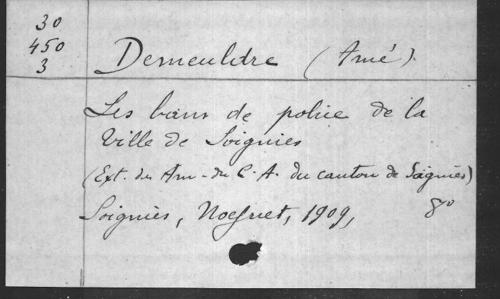 30
450
3
Demeuldre (Amé).
Les bans de police de la
Ville de Soignies
(Ext. des Ann. du C. A. du canton de Soignies)
Soignies, Noëjuet, 1909, 8º